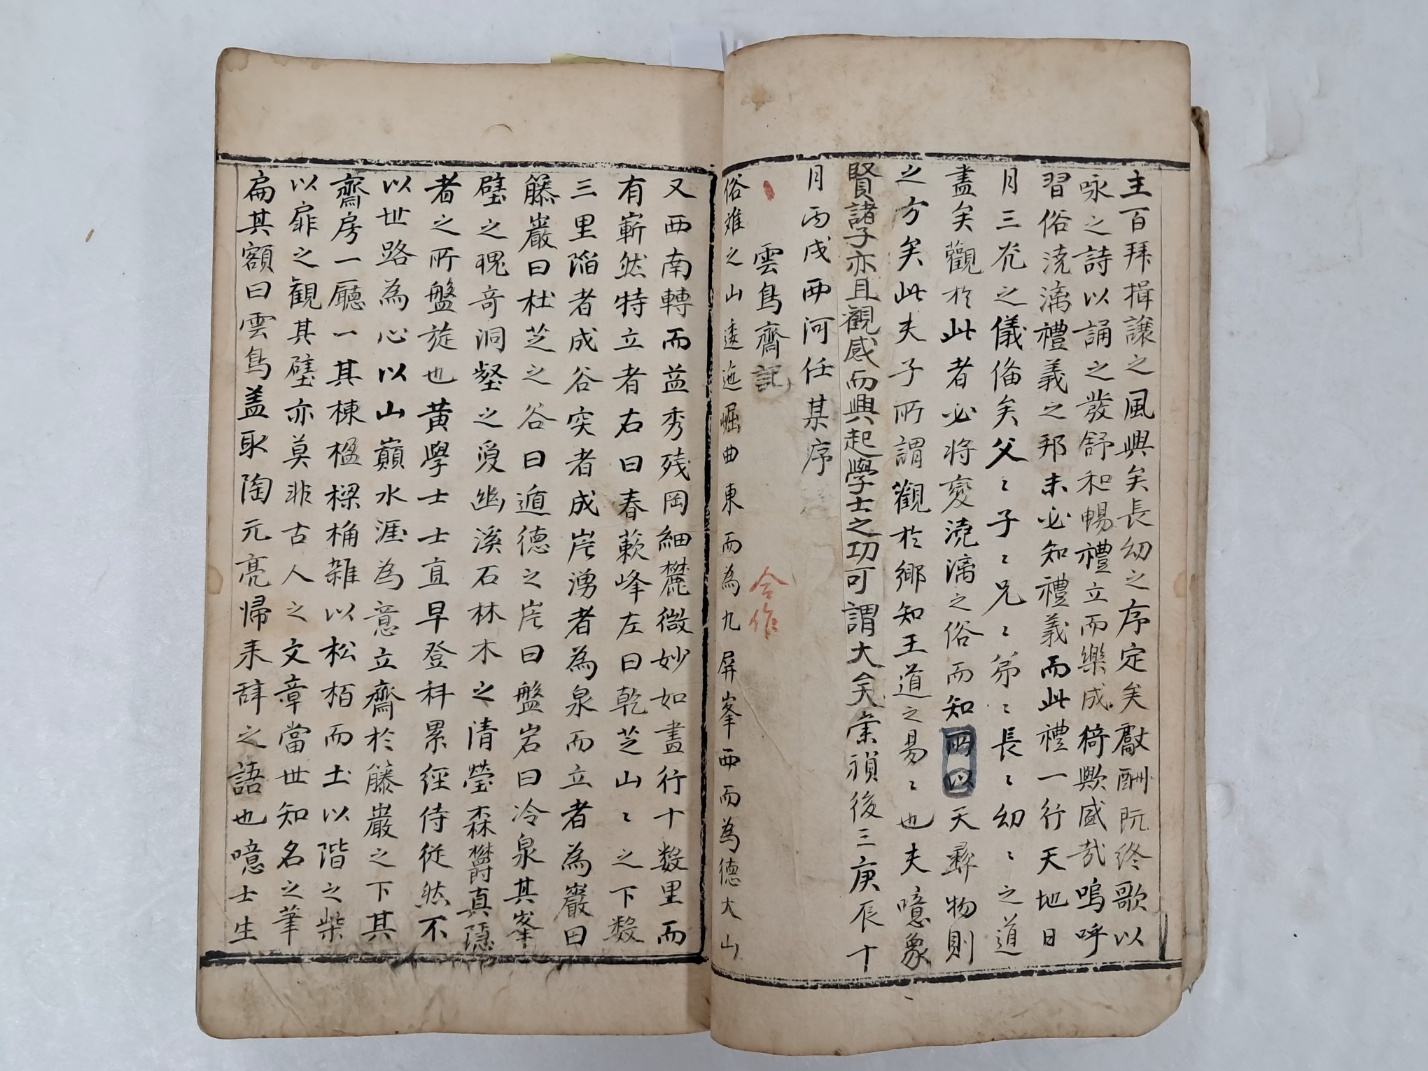 主百拜揖讓之風興矣長幼之序定矣獻酬旣終歌以
咏之詩以誦之發舒和暢禮立而樂成猗歟盛哉嗚呼
習俗澆漓禮義之邦未必知禮義而此禮一行天地日
月三光之儀俻矣父〻子〻兄〻弟〻長〻幼〻之道
盡矣觀於此者必將變澆漓之俗而知所以天彛物則
之方矣此夫子所謂觀於鄉知王道之易〻也夫噫象
賢諸子亦且觀感而興起學士之功可謂大矣崇禎後三庚辰十
月丙戌西河任某序
雲鳥齋記
合作
俗離之山逶迤崛曲東而為九屛峯西而為德大山
又西南轉而益秀殘岡細麓微妙如畫行十數里而
有嶄然特立者右曰春蔌峰左曰乾芝山〻之下数
三里陷者成谷突者成岸湧者為泉而立者為巖曰
籐巖曰杜芝之谷曰遁德之岸曰盤岩曰冷泉其峯
壁之瑰奇洞壑之夐幽溪石林木之清瑩森欝真隱
者之所盤旋也黄學士士直早登科累經侍從然不
以世路為心以山巔水涯為意立齋於籐巖之下其
齋房一廳一其棟楹樑桷雜以松栢而土以階之柴
以扉之観其壁亦莫非古人之文章當世知名之筆
扁其額曰雲鳥盖取陶元亮歸来辞之語也噫士生